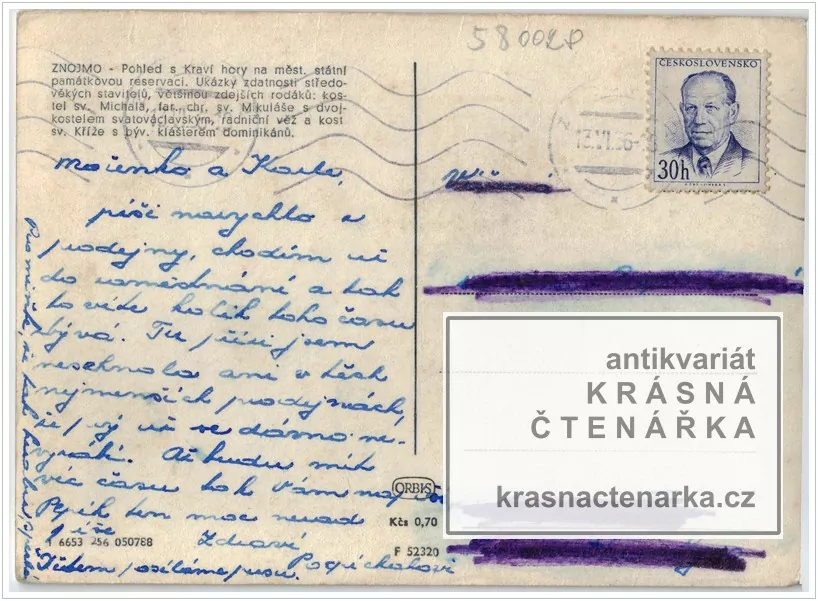 58002P
ZNOJMO - Pohled s Kraví hory na měst. státní
památkovou reservaci. Ukázky zdatnosti středo-
věkých stavitelů, většinou zdejších rodáků: kos-
tel sv. Michala, far. chr. sv. Mikuláše s dvoj-
kostelem svatováclavským, radniční věž a kost
sv. Kříže s býv. klášterem dominikánů.
a Karle,
píši narychlo z
prodejny, chodím už
do zaměstnání a tak
to víte kolik toho času
zbývá. Tu přízi jsem
nesehnala ani v těch
nejmenších prodejnách,
že prý už se dávno ne-
vyrábí. Až budu mít
víc času tak Vám napíši
Pepík ten moc nerad
píše Zdraví
Pospíchalovi
Všem posíláme pusu.
Promiňte, že tak
6653 256 050788
ORBIS
Kčs 0,70
F 52320
ČESKOSLOVENSKO
30h
13.VI.56
antikvariát
KRÁSNÁ
ČTENÁŘKA
krasnactenarka.cz